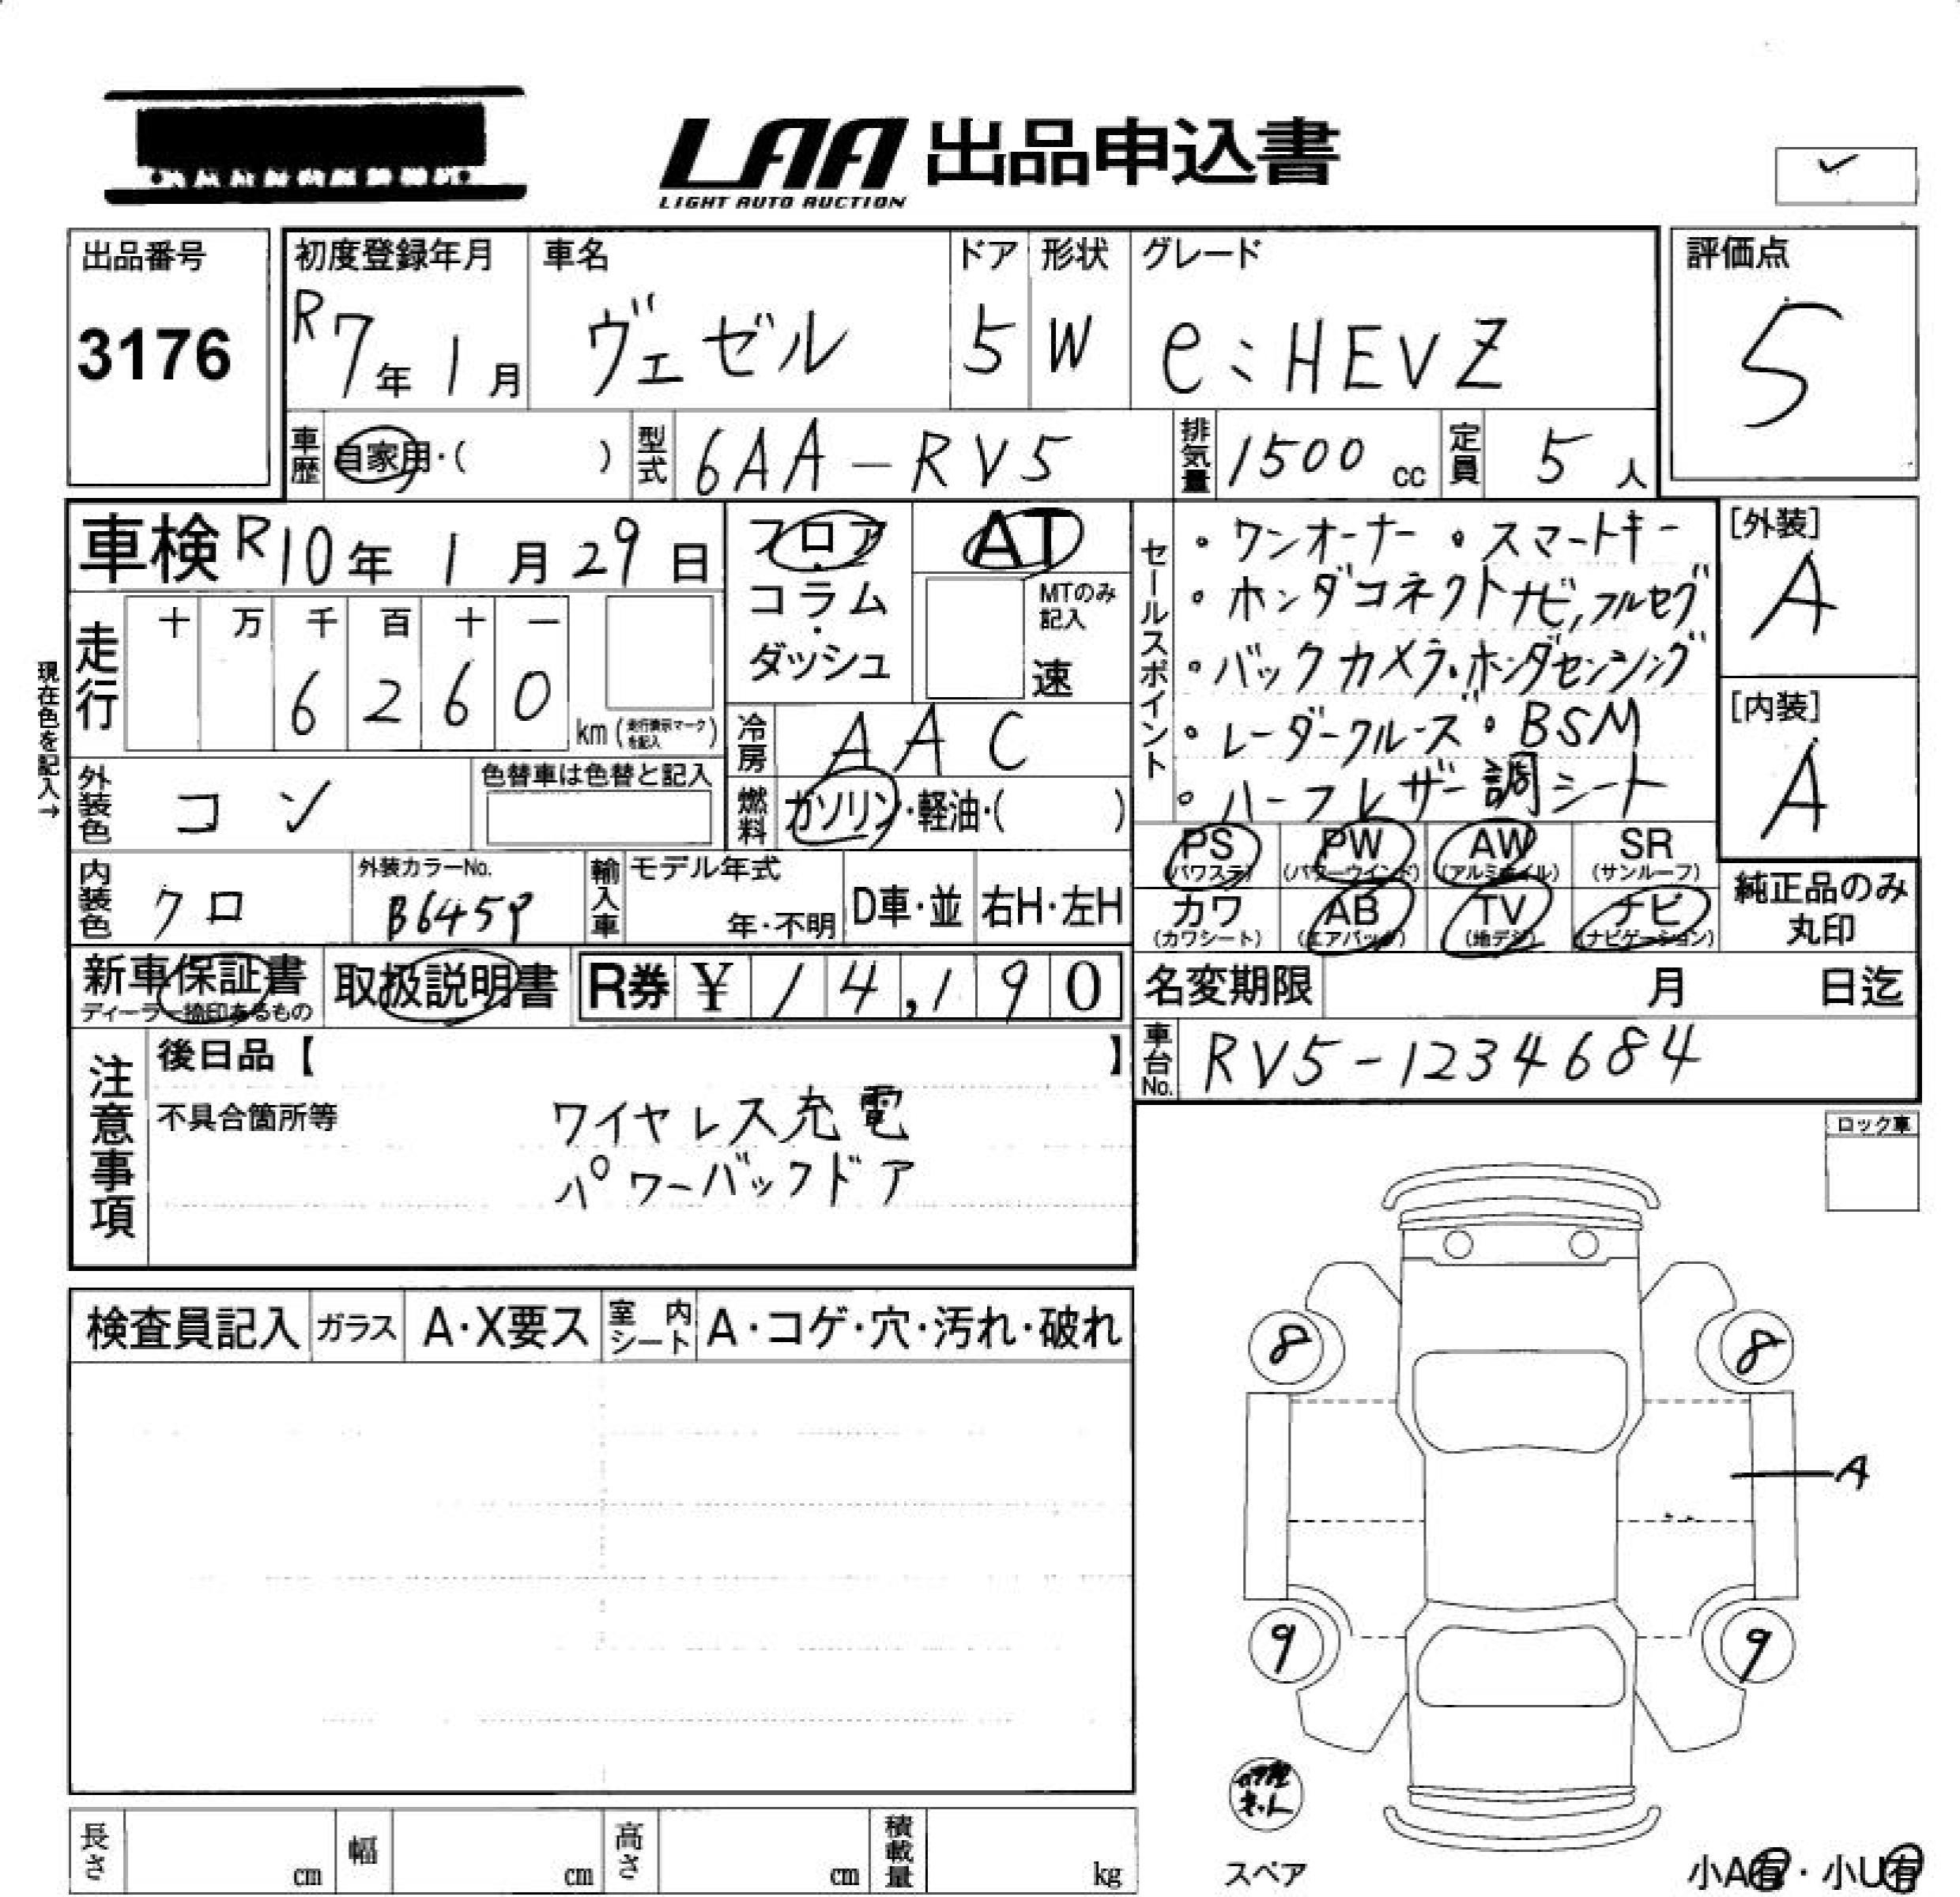 LAA 出品申込書
LIGHT AUTO AUCTION
出品番号
3176
初度登録年月
R7年1月
車名
ヴェゼル
ドア
5
形状
W
グレード
e:HEVZ
評価点
5
車歴
自家用・( )
型式
6AA-RV5
排気量
1500cc
定員
5人
車検 R10年1月29日
フロア・コラム・ダッシュ
AT
MTのみ記入
速
セールスポイント
・ワンオーナー ・スマートキー
・ホンダコネクトナビ,フルセグ
・バックカメラ・ホンダセンシング
・レーダークルーズ・BSM
・ハーフレザー調シート
[外装]
A
[内装]
A
現在色を記入→
走行
十 万 千 百 十 一
6 2 6 0
km(走行換示マークを記入)
冷房
AAC
外装色
コン
色替車は色替と記入
燃料
ガソリン・軽油・( )
PS (パワステ)
PW (パワーウインド)
AW (アルミホイル)
SR (サンルーフ)
カワ (カワシート)
AB (エアバック)
TV (地デジ)
ナビ (ナビゲーション)
純正品のみ丸印
内装色
クロ
外装カラーNo.
B645P
輸入車
モデル年式
年・不明
D車・並
右H・左H
新車保証書
ディーラー捺印あるもの
取扱説明書
R券 ¥ 14,190
名変期限 月 日迄
車台No.
RV5-1234684
注意事項
後日品【 】
不具合箇所等
ワイヤレス充電
パワーバックドア
ロック車
検査員記入
ガラス
A・X要ス
室内シート
A・コゲ・穴・汚れ・破れ
8
8
A
9
9
スペア
小A有・小U有
長さ cm
幅 cm
高さ cm
積載量 kg